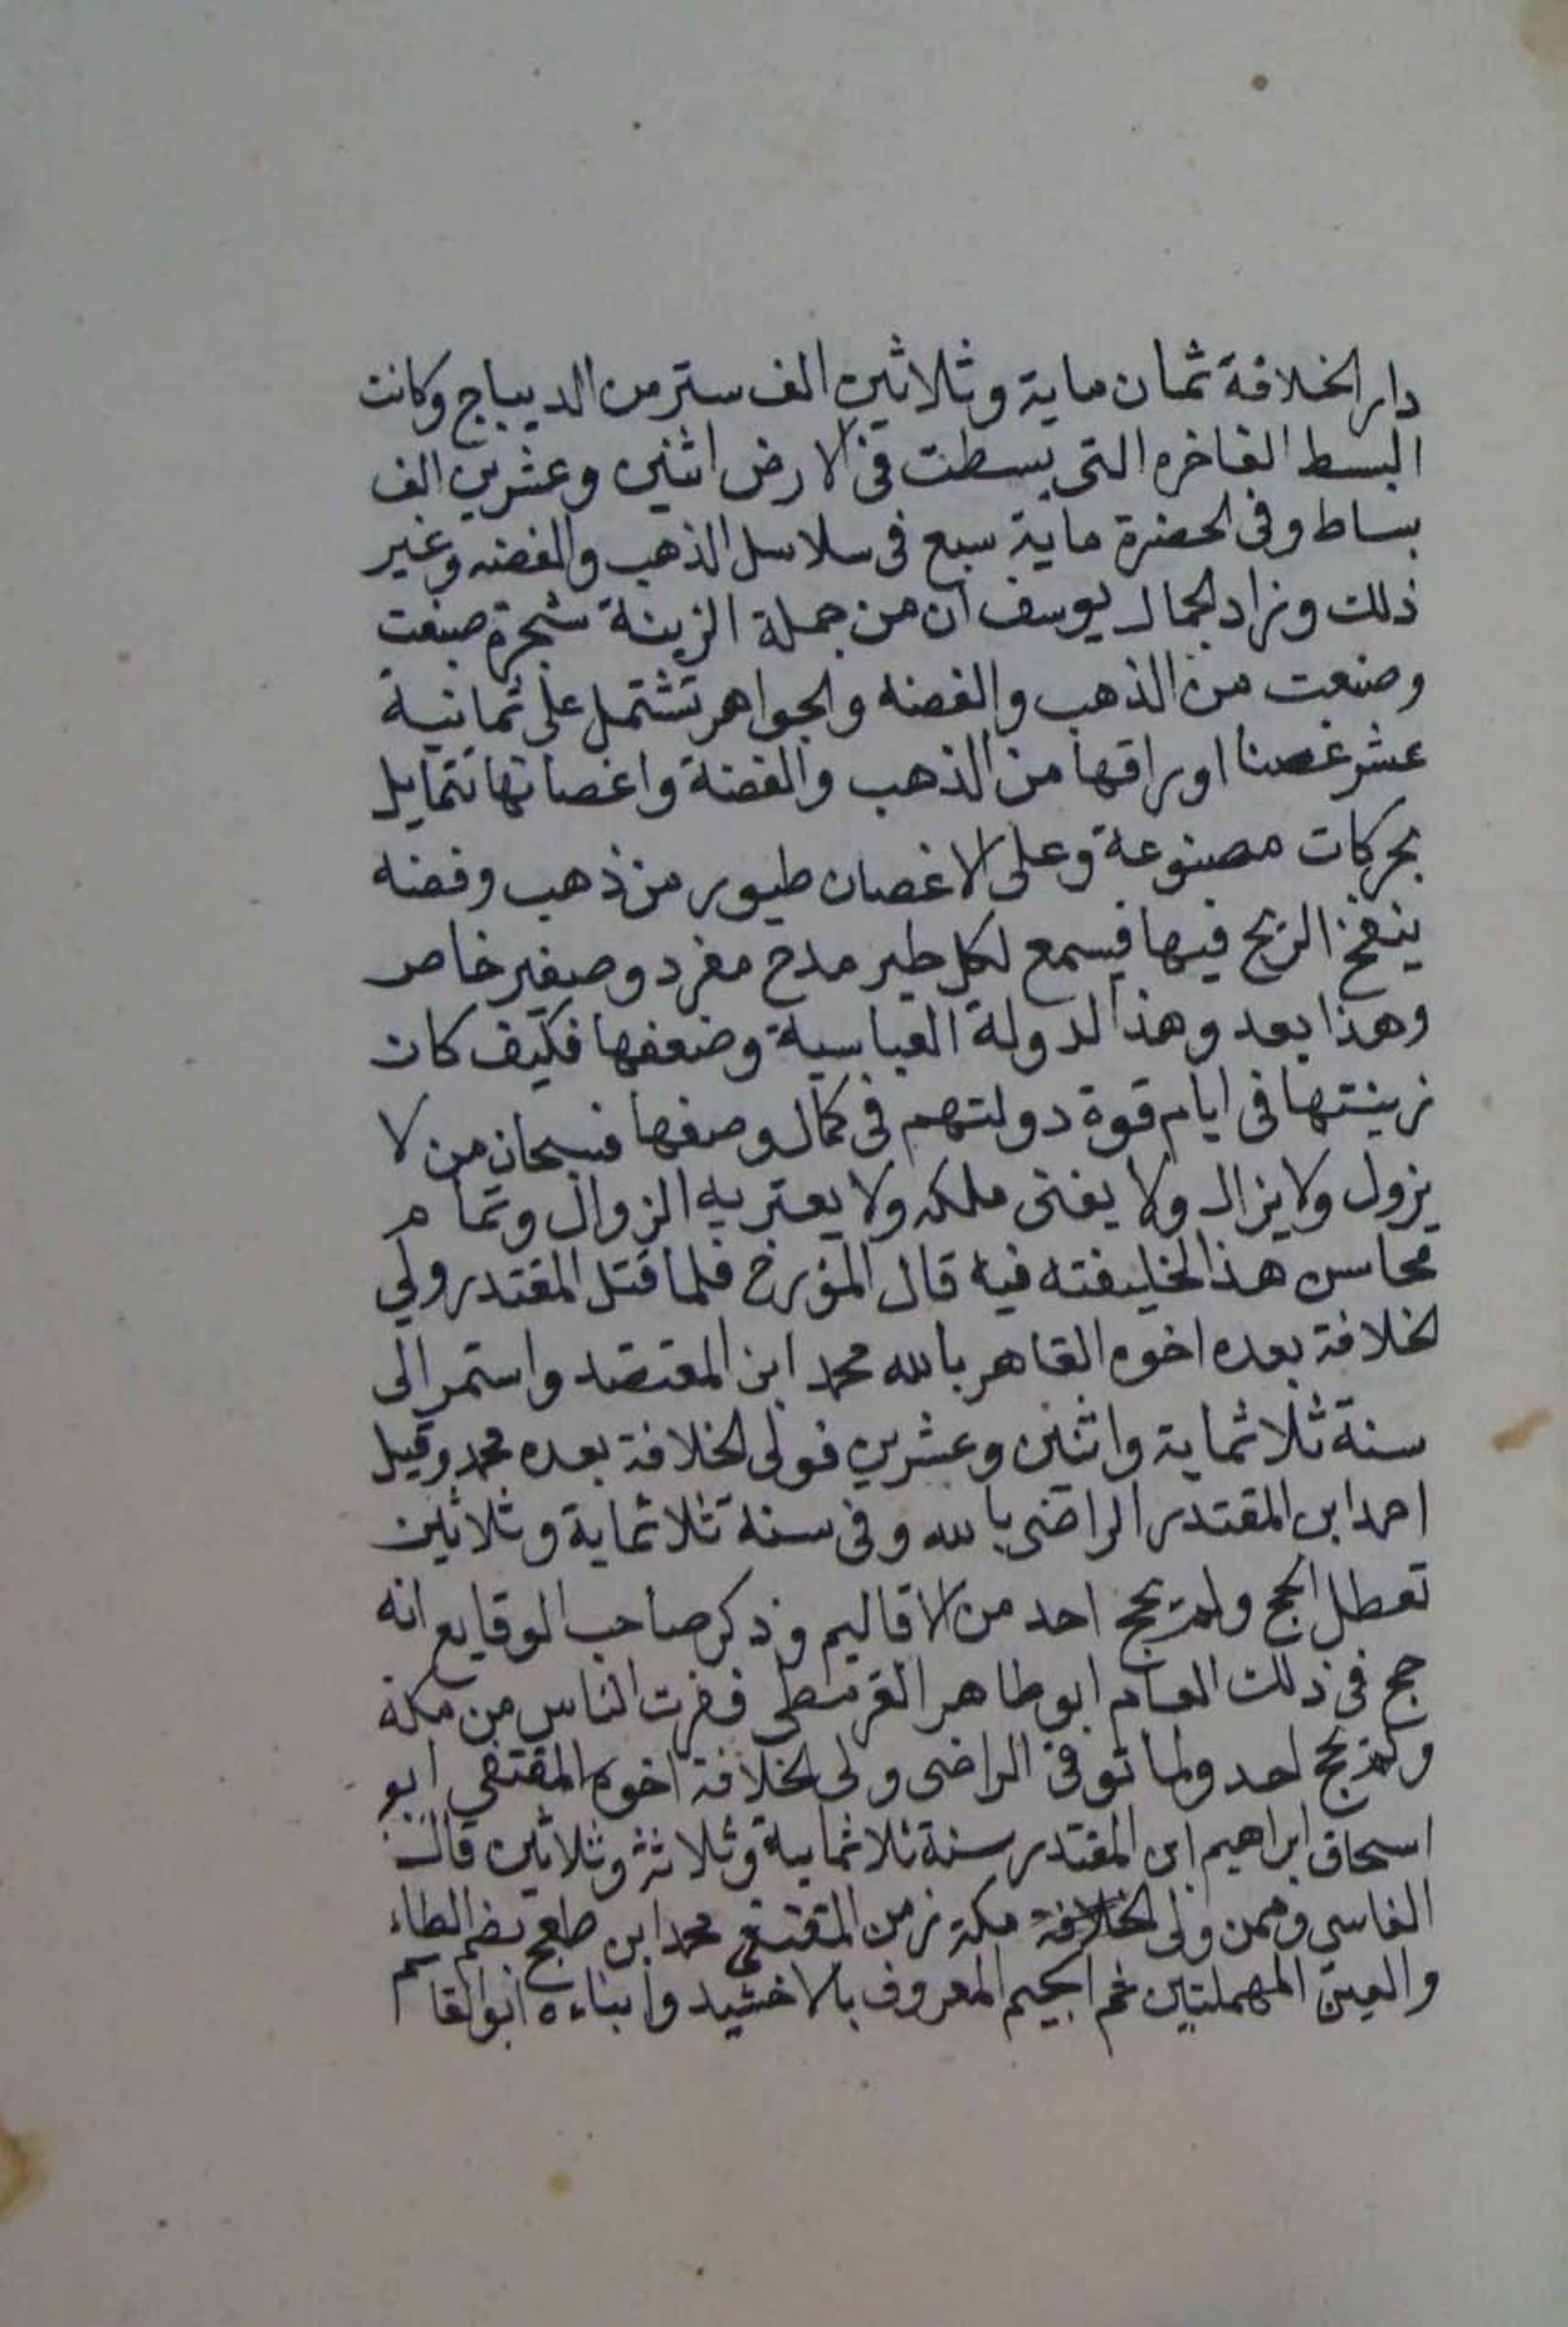 دار الخلافة ثمان ماية وثلاثين الف ستر من الديباج وكانت
البسط الفاخره التى بسطت فى الارض اثنين وعشرين الف
بساط وفى الحضرة ماية سبع فى سلاسل الذهب والفضه وغير
ذلك وزاد الجمال يوسف ان من جملة الزينة شجرة صبغت
وصنعت من الذهب والفضه والجواهر تشتمل على ثمانية
عشر غصنا اوراقها من الذهب والفضة واغصانها تتمايل
بحركات مصنوعة وعلى الاغصان طيور من ذهب وفضه
ينفخ الريح فيها فيسمع لكل طير مدح مفرد وصفير خاص
وهذا بعد وهذ الدولة العباسية وضعفها فكيف كان
زينتها فى ايام قوة دولتهم فى كمال وصفها فسبحان من لا
يزول ولا يزال ولا يفنى ملكه ولا يعتريه الزوال وتمام
محاسن هذ الخليفته فيه قال المؤرخ فلما قتل المقتدر ولي
لخلافة بعده اخوه القاهر بالله محمد ابن المعتضد واستمر الى
سنة ثلاثماية واثنين وعشرين فولى الخلافة بعده محمد وقيل
احمد ابن المقتدر الراضى بالله وفى سنة ثلاثماية وثلاثين
تعطل الحج ولم يحج احد من الاقاليم وذكر صاحب الوقايع انه
حج فى ذلك العام ابو طاهر القرمطى ففرت الناس من مكة
ولم يحج احد ولما توفى الراضى ولى الخلافة اخوه المقتفي ابو
اسحاق ابراهيم ابن المقتدر سنة ثلاثماية وثلاثة وثلاثين قال
الفاسي وممن ولى مكة زمن المقتفي محمد ابن طعج بضم الطاء
والعين المهملتين ثم الجيم المعروف بالاخشيد وابناءه ابو القاسم